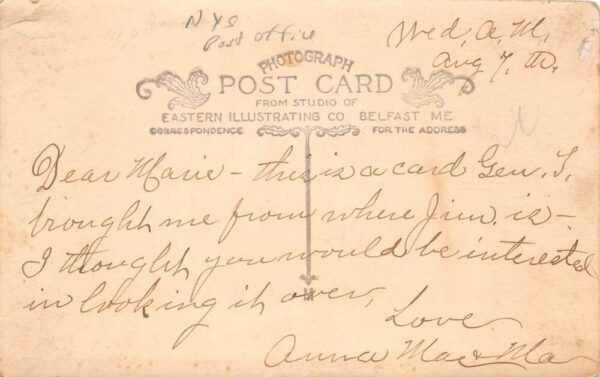 N Y S
Post office
Wed. A. M.
Aug 7. th.
PHOTOGRAPH
POST CARD
FROM STUDIO OF
EASTERN ILLUSTRATING CO BELFAST ME
CORRESPONDENCE FOR THE ADDRESS
Dear Marie - this is a card Gen. S.
brought me from where Jim. is -
I thought you would be interested
in looking it over,
M
Love
Anna Mae & Ma